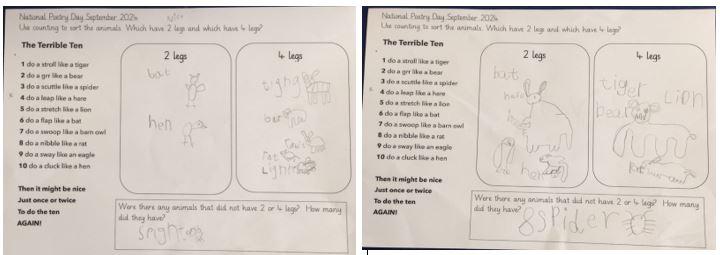 National Poetry Day September 2024
Use counting to sort the animals. Which have 2 legs and which have 4 legs?
The Terrible Ten
1 do a stroll like a tiger
2 do a grr like a bear
3 do a scuttle like a spider
4 do a leap like a hare
5 do a stretch like a lion
6 do a flap like a bat
7 do a swoop like a barn owl
8 do a nibble like a rat
9 do a sway like an eagle
10 do a cluck like a hen
Then it might be nice
Just once or twice
To do the ten
AGAIN!
2 legs
bat
hen
4 legs
bar
rat
Were there any animals that did not have 2 or 4 legs? How many
did they have?
National Poetry Day September 2024
Use counting to sort the animals. Which have 2 legs and which have 4 legs?
The Terrible Ten
1 do a stroll like a tiger
2 do a grr like a bear
3 do a scuttle like a spider
4 do a leap like a hare
5 do a stretch like a lion
6 do a flap like a bat
7 do a swoop like a barn owl
8 do a nibble like a rat
9 do a sway like an eagle
10 do a cluck like a hen
Then it might be nice
Just once or twice
To do the ten
AGAIN!
2 legs
bat
hen
4 legs
tiger
LiOn
bear
Rat
Were there any animals that did not have 2 or 4 legs? How many
did they have?
8 spider